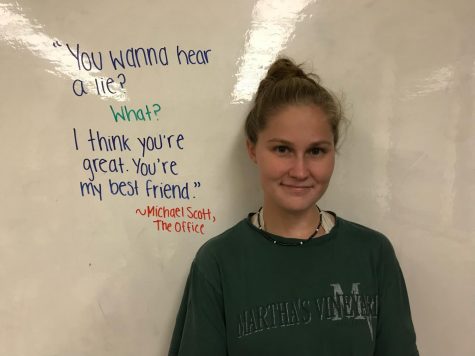 "You wanna hear
a lie?
What?
I think you're
great. You're
my best friend."
~Michael Scott,
The Office
MARTHA'S VINEYARD
MV